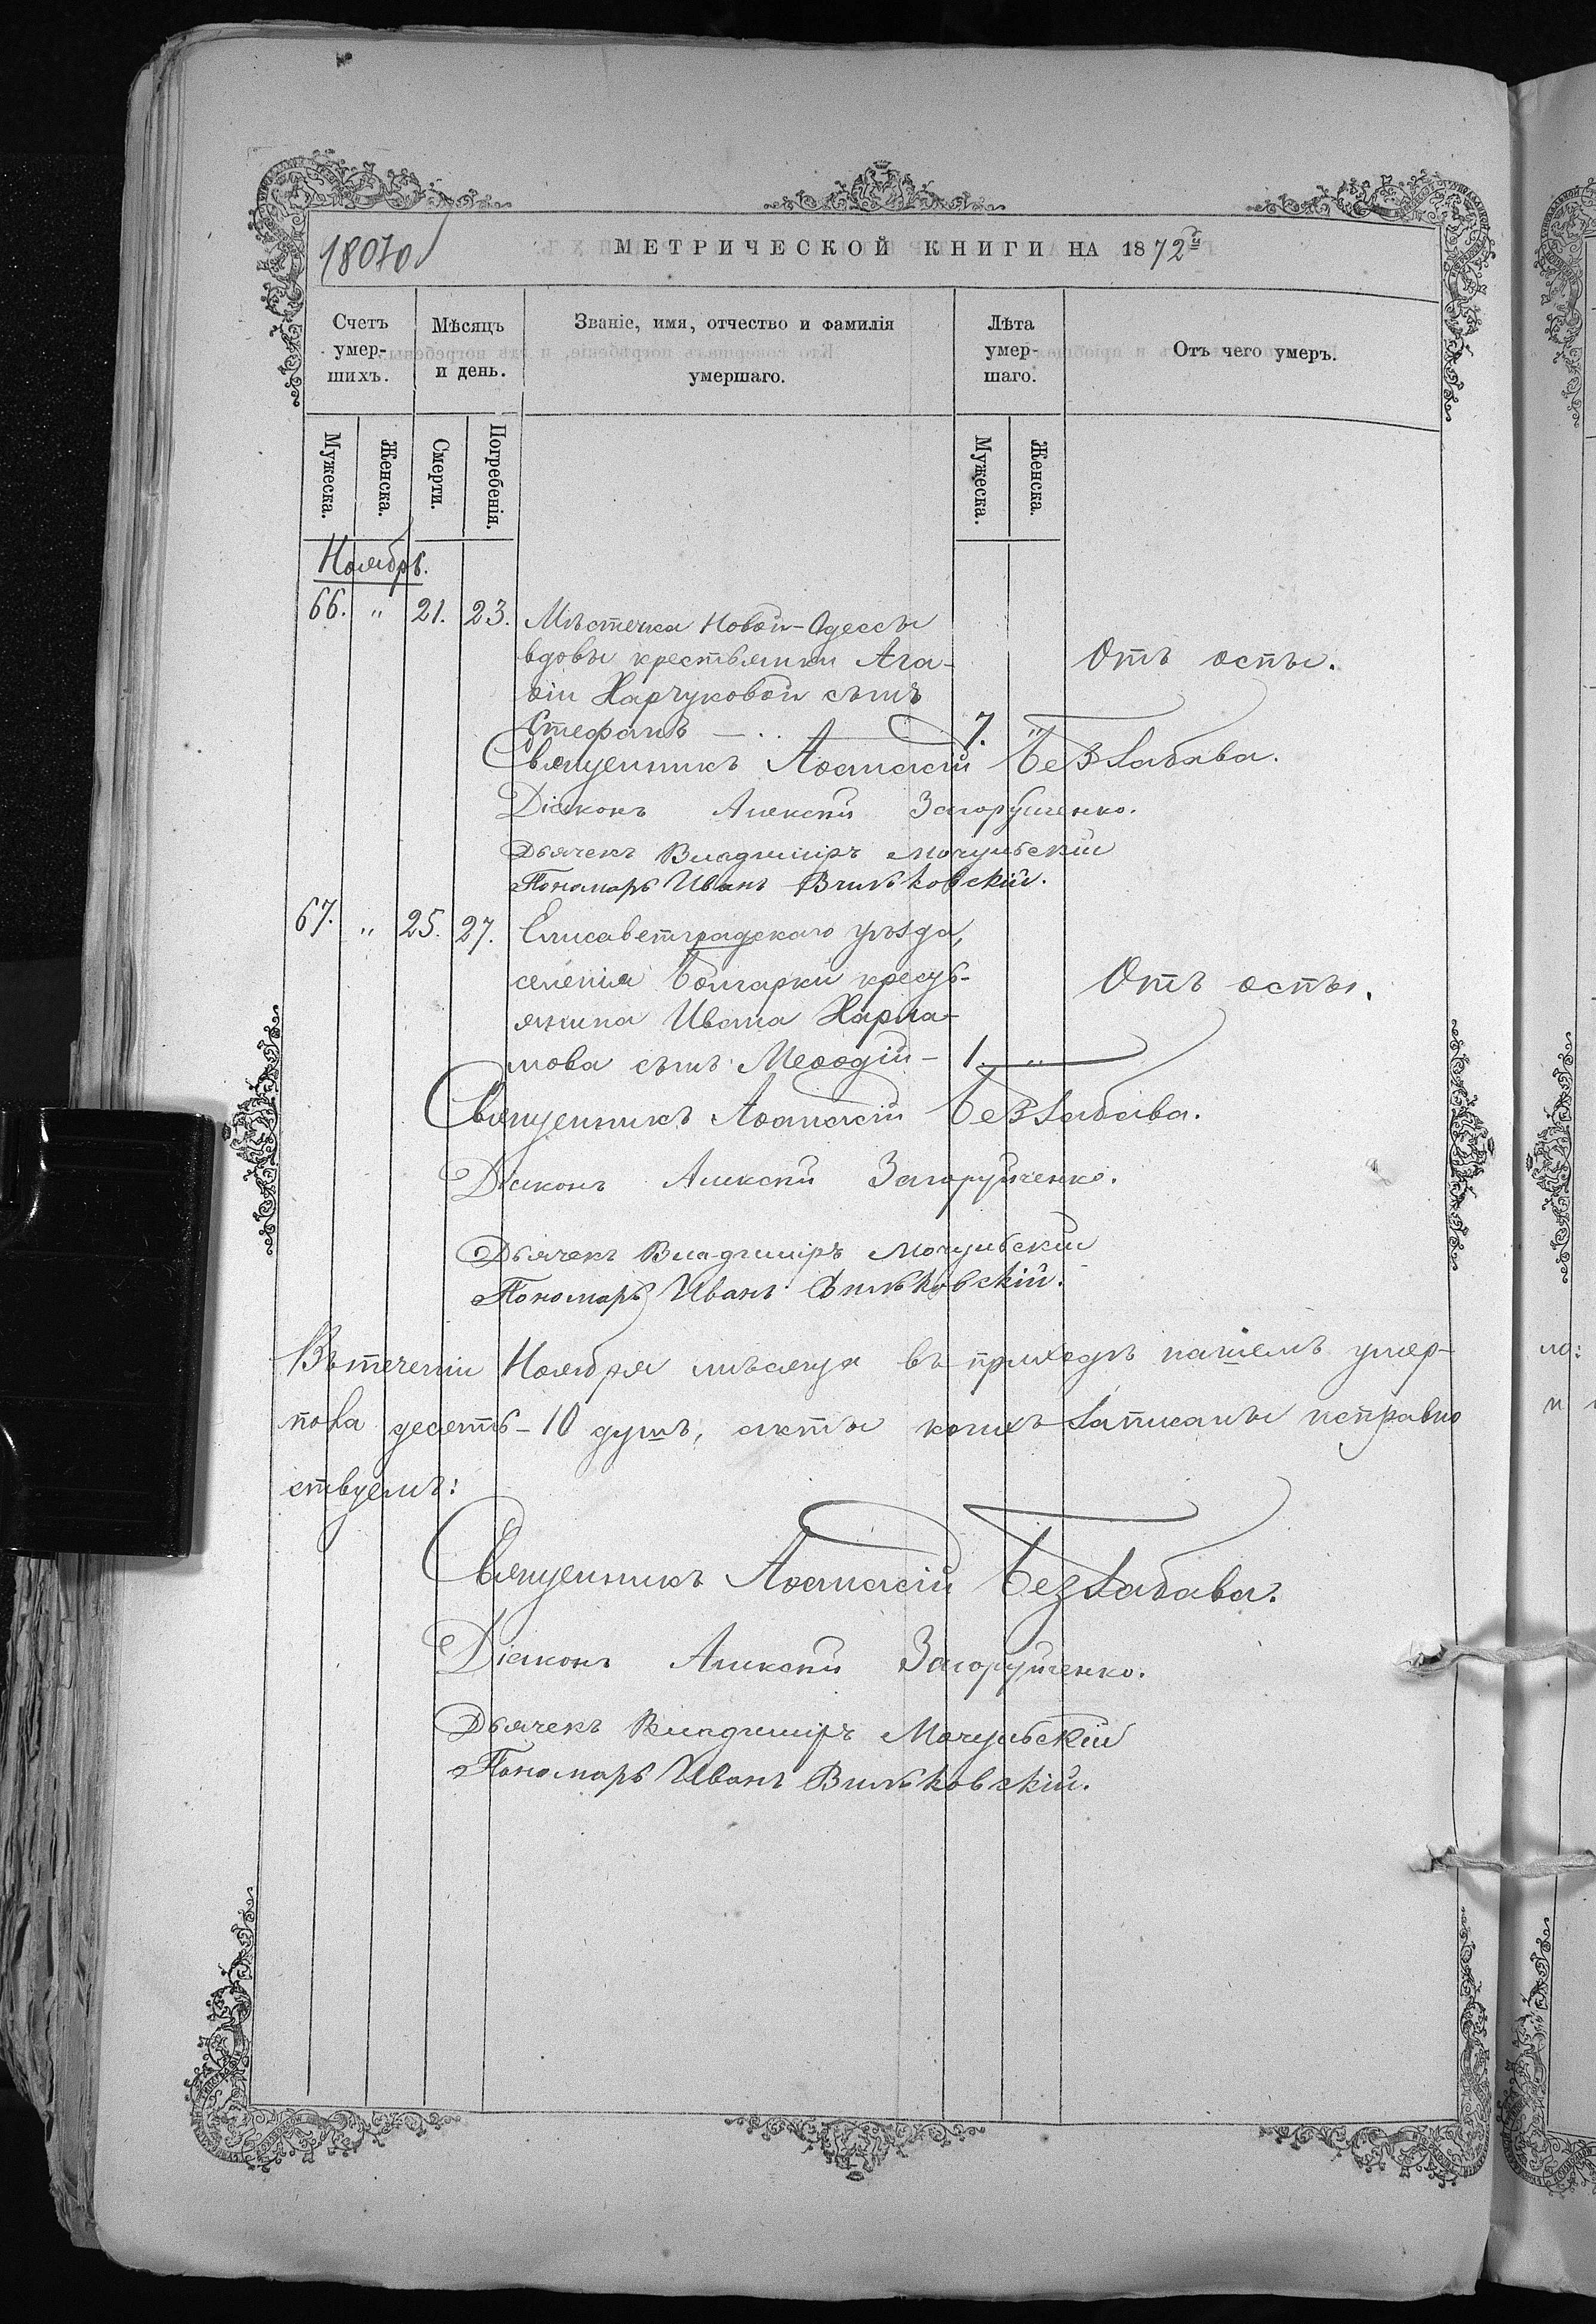 18070
МЕТРИЧЕСКОЙ КНИГИ НА 1872й
Счетъ умер- шихъ.
Мѣсяцъ и день.
Званіе, имя, отчество и фамилія умершаго.
Лѣта умер- шаго.
Отъ чего умеръ.
Мужеска. Женска. Смерти. Погребенія. Мужеска. Женска.
Ноябрь.
66. " 21. 23. Мѣстечка Новой-Одессы
вдовы крестьянки Ага-
ѳіи Харчуковой сынъ
Отъ оспы.
Стефанъ — 7. "
Священникъ Аѳанасій Беззабава.
Діаконъ Алексѣй Загоруйченко.
Дьячекъ Владиміръ Мочульскій
Пономарь Иванъ Вильковскій.
67. " 25. 27. Елисаветградскаго уѣзда,
селенія Болгарки кресть-
янина Ивана Харла-
Отъ оспы.
мова сынъ Меѳодій - 1. "
Священникъ Аѳанасій Беззабава.
Діаконъ Алексѣй Загоруйченко.
Дьячекъ Владиміръ Мочульскій
Пономарь Иванъ Вильковскій.
Въ теченіи Ноября мѣсяца въ приходѣ нашемъ умер-
десять - 10 душъ, акты коихъ записаны исправно
ствуемъ:
Священникъ Аѳанасій Беззабава.
Діаконъ Алексѣй Загоруйченко.
Дьячекъ Владиміръ Мочульскій
Пономарь Иванъ Вильковскій.